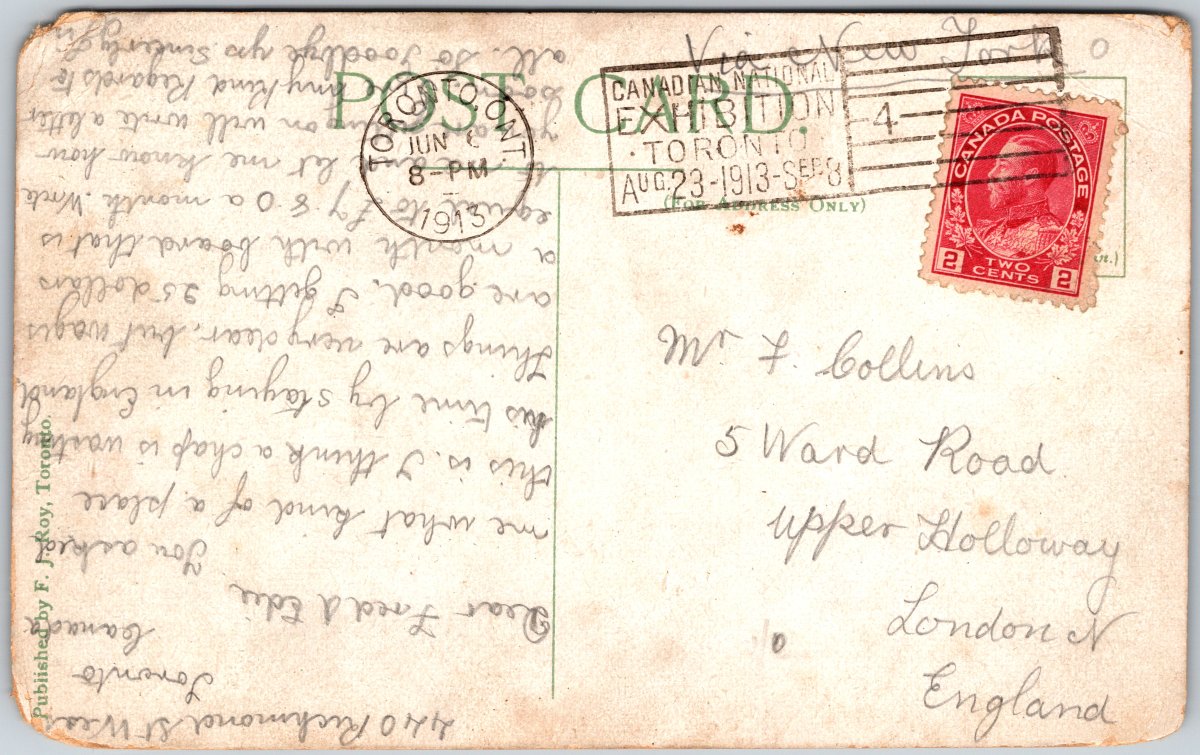 Via New York
POST CARD.
TORONTO, ONT.
JUN
8-PM
1913
CANADIAN NATIONAL
EXHIBITION
TORONTO
AUG. 23-1913-SEP. 8
4
(FOR ADDRESS ONLY)
CANADA POSTAGE
2 TWO CENTS 2
Mr F. Collins
5 Ward Road
Upper Holloway
London N
England
Published by F. J. Roy, Toronto.
440 Richmond St West
Toronto
Canada
Dear Fred & Edie
You asked
me what kind of a place
this is. I think a chap is wasting
his time by staying in England
things are very dear, but wages
are good. I getting 25 dollars
a month with board that is
equal to £7.80 a month. Write
and let me know how
you on will write a letter
soon my kind Regards to
all. So Goodbye yrs Sincerly